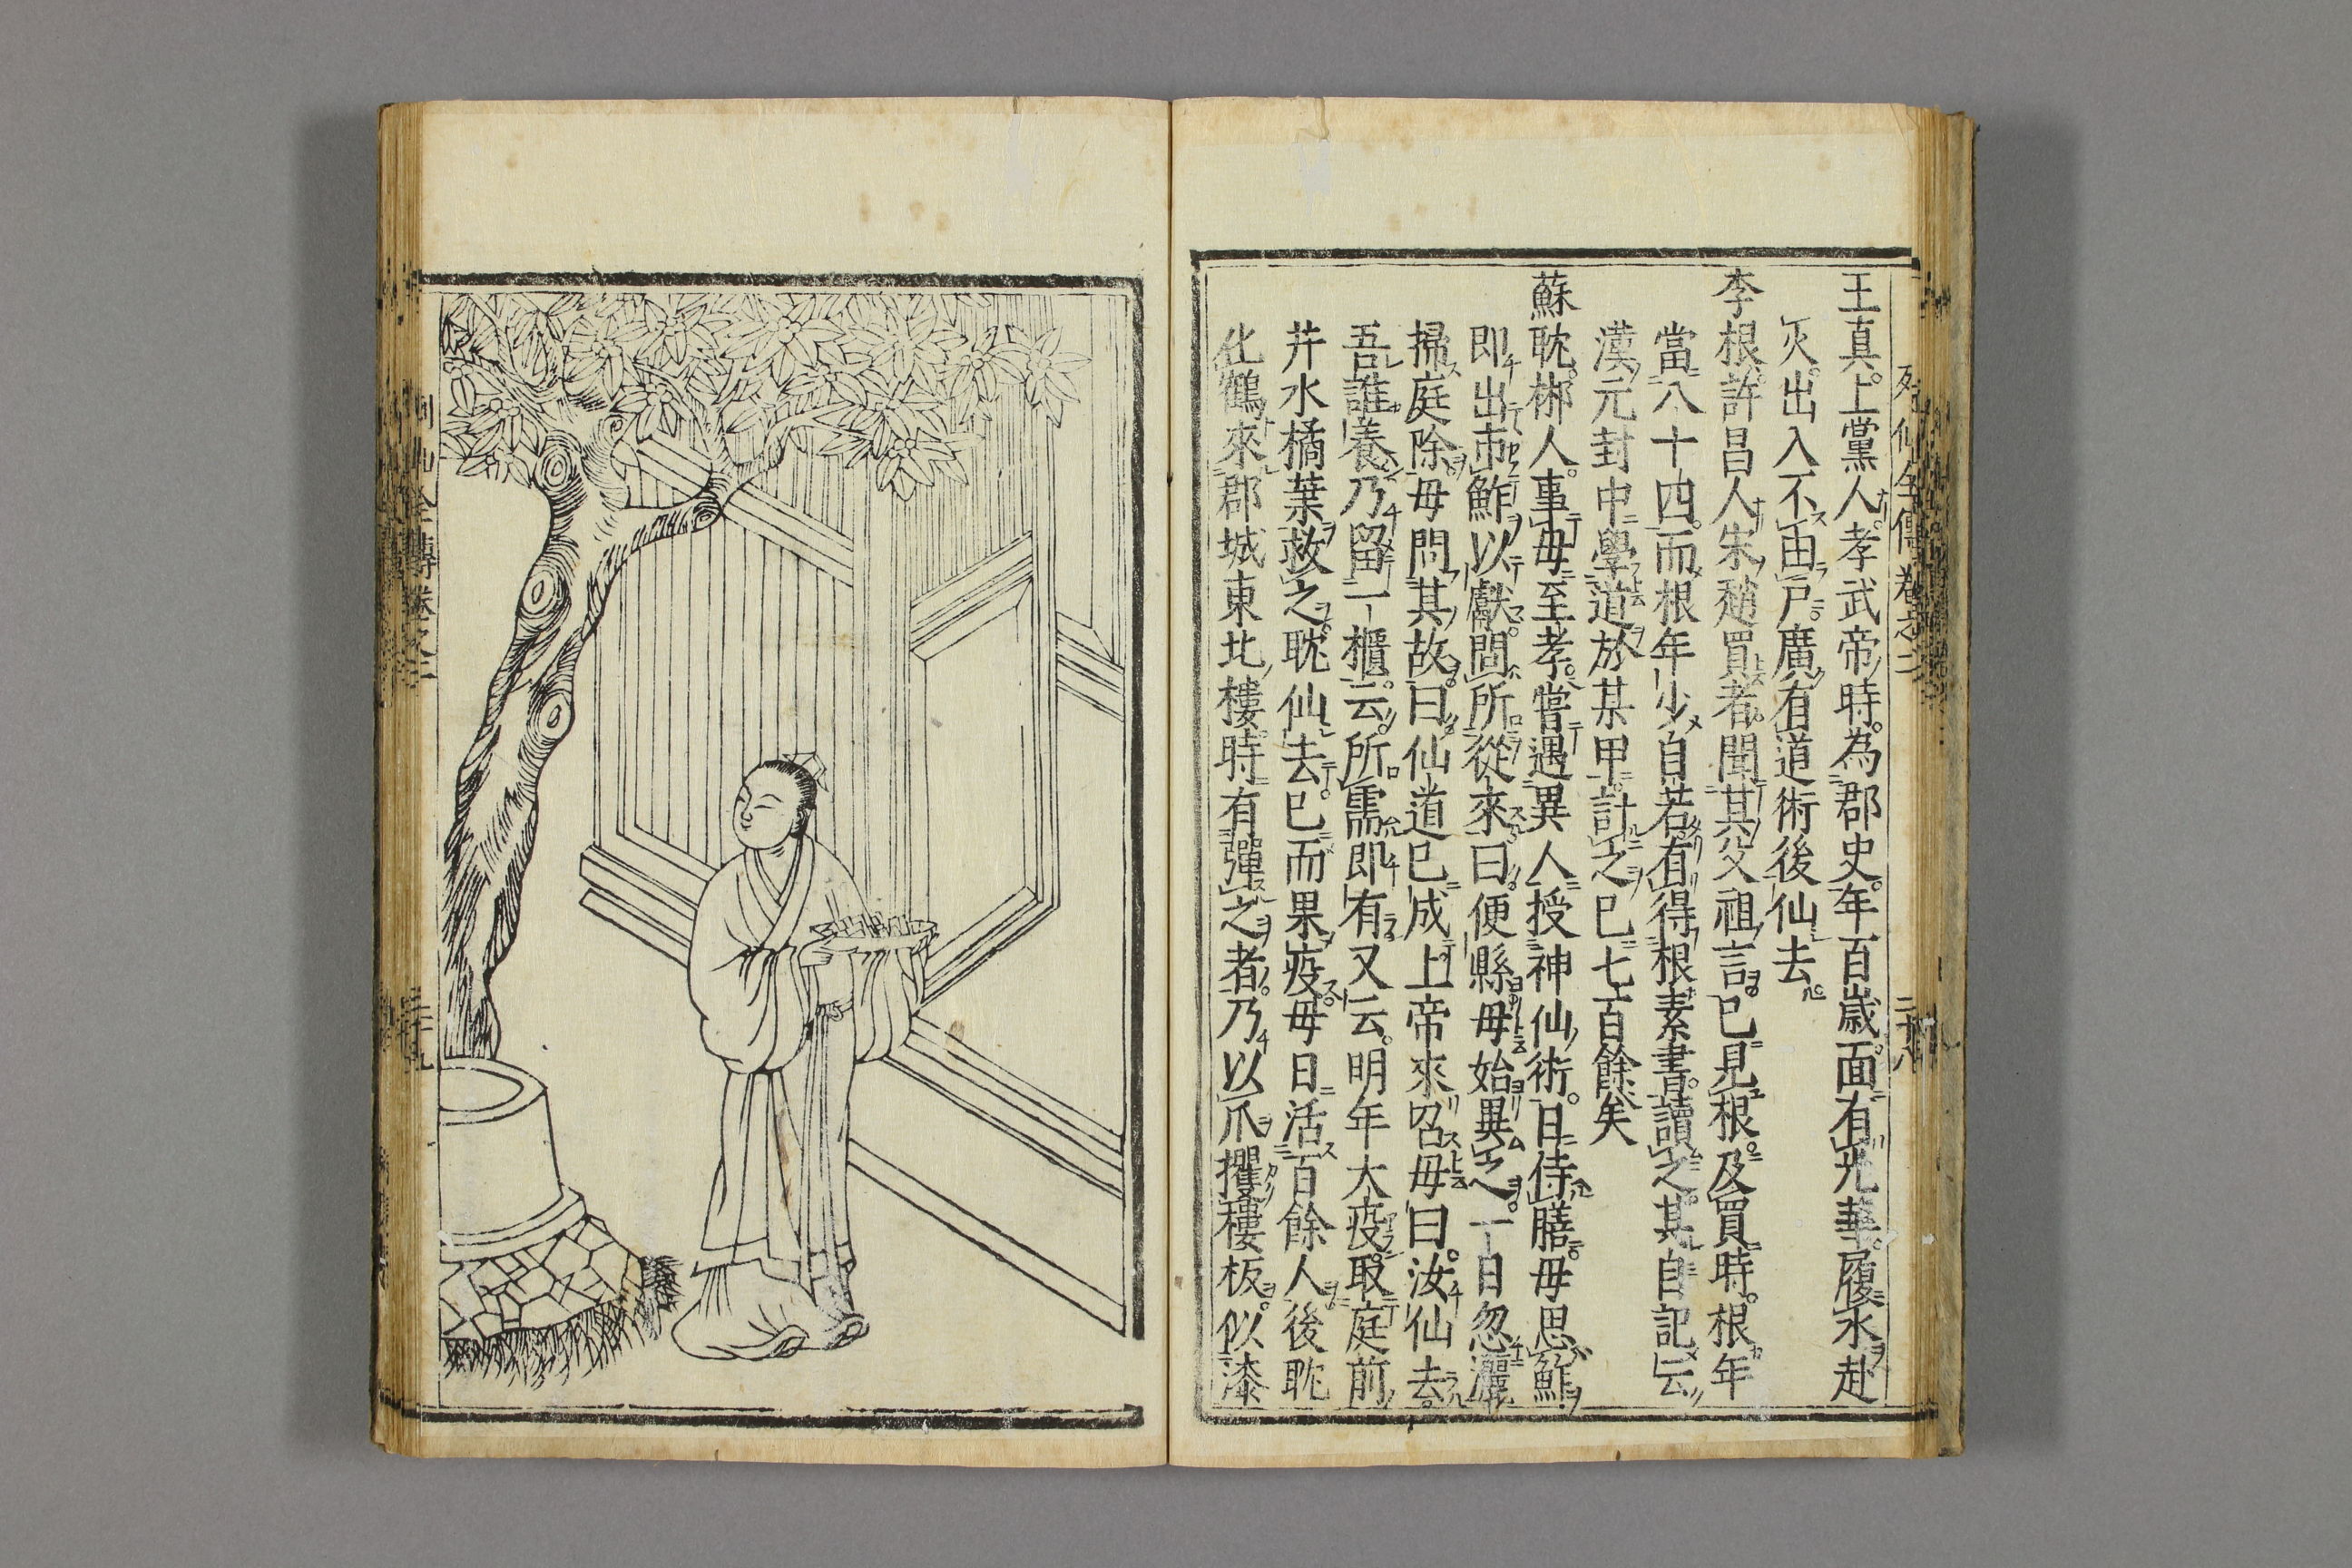 列仙全傳卷之二
二十八
王真。上黨人。孝武帝時。為郡史。年百歲。面有光華。履水赴
火。出入不由戸。廣有道術後仙去。
李根。許昌人宋趙買者。聞其父祖言。已見根。及買時。根年
當八十四。而根年少自若。有得根素書。讀之。其自記云
漢元封中學道於某甲計之已七百餘矣
蘇耽。郴人。事母至孝。嘗遇異人授神仙術。日侍膳。母思鮓
即出市鮓以獻。問所從來。曰便縣。母始異之。一日忽灑
掃庭除。母問其故。曰。仙道已成。上帝來召。母曰。汝仙去。
吾誰養。乃留一櫃。云。所需即有。又云。明年大疫。取庭前
井水橘葉救之。耽仙去。已而果疫。母日活百餘人。後耽
化鶴來郡城東北樓。時有彈之者。乃以爪攫樓板。似漆
列仙全傳卷之二
二十九